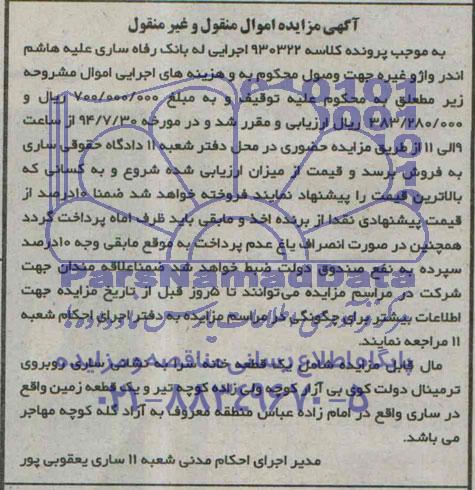 آگهی مزایده اموال منقول و غیر منقول
به موجب پرونده کلاسه ۹۳۰۳۲۲ اجرایی له بانک رفاه ساری علیه هاشم
اندر واژ و غیره جهت وصول محکوم به و هزینه های اجرایی اموال مشروحه
زیر مطعلق به محکوم علیه توقیف و به مبلغ ۷۰۰/۰۰۰/۰۰۰ ریال و
۳۸۳/۲۸۰/۰۰۰ ریال ارزیابی و مقرر شد و در مورخه ۹۴/۷/۳۰ از ساعت
۹الی ۱۱ از طریق مزایده حضوری در محل دفتر شعبه ۱۱ دادگاه حقوقی ساری
به فروش برسد و قیمت از میزان ارزیابی شده شروع و به کسانی که
بالاترین قیمت را پیشنهاد نمایند فروخته خواهد شد ضمنا ۱۰درصد از
قیمت پیشنهادی نقدا از برنده اخذ و مابقی باید ظرف اماه پرداخت گردد
همچنین در صورت انصراف یاغ عدم پرداخت به موقع مابقی وجه ۱۰درصد
سپرده به نفع صندوق دولت ضبط خواهد شد ضمناعلاقه مندان جهت
شرکت در مراسم مزایده می‌توانند تا ۵روز قبل از تاریخ مزایده جهت
اطلاعات بیشتر برای چگونگی در مراسم مزایده به دفتر اجرای احکام شعبه
۱۱ مراجعه نمایند.
مال قابل مزایده شامل یک قطعه خانه سرا به نشانی ساری روبروی
ترمینال دولت کوی بی آزار کوچه ولی زاده کوچه تیر و یک قطعه زمین واقع
در ساری واقع در امام زاده عباس منطقه معروف به آزاد گله کوچه مهاجر
می باشد.
مدیر اجرای احکام مدنی شعبه ۱۱ ساری یعقوبی پور
ParsNamadData
پایگاه اطلاع رسانی مناقصه و مزایده
۰۲۱-۸۸۳۴۹۶۷۰-۵